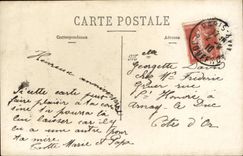 CARTE POSTALE
Correspondance
Adresse
Heureux anniversaire
Si cette carte peut
faire plaisir à ta cou
sine tu pourras ta
lui laisser car il y
a une autre pour
ta mère
Marie et Papa
Mlle
Georgette
chez Mr Frédéric
rue
St Honoré à
Arnay le Duc
Côte d'Or